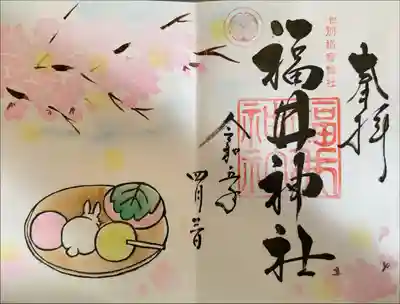 奉拝
別格官幣社
福井神社
福井神社
令和五年
四月廿一日